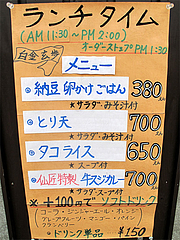 ランチタイム
(AM11:30〜PM2:00)
オーダーストップPM1:30
メニュー
納豆卵かけごはん 380
★サラダ・みそ汁付
とり天 700
★サラダ・みそ汁付
タコライス 650
★スープ付
仙匠特製 牛スジカレー 700
サラダ・スープ付
★+100円でソフトドリンク
コーラ・ジンジャーエール・オレンジ
グレープフルーツ・
ドリンク単品 ¥150